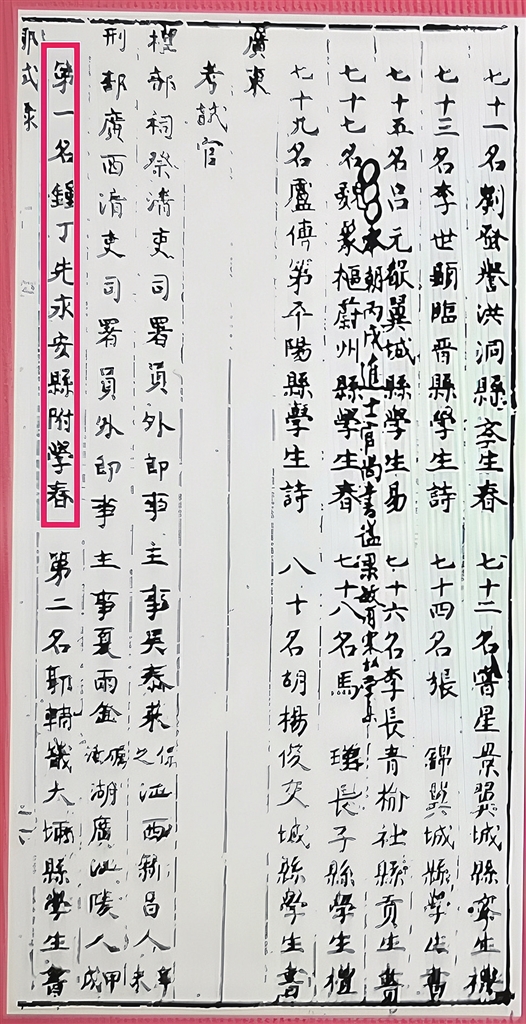 七十一名劉發譽洪洞縣學生春 七十二名常星景翼城縣學生禮
七十三名李世顯臨晉縣學生詩 七十四名張 錦翼城縣學生書
七十五名呂元 翼城縣學生易 七十六名李長青榆社縣貢生書
本朝丙戌進士官尚書諡果敏
七十七名魏象樞蔚州縣學生春 七十八名馬 長子縣學生禮
七十九名盧傅第平陽縣學生詩 八十名胡楊俊交城縣學生書
廣東
考試官
禮部祠祭清吏司署員外郎事主事吳泰來 江西新昌人
刑部廣西清吏司署員外郎事主事夏雨金 湖廣江陵人 甲戌
第一名鍾丁先永安縣附學春 第二名郭輔畿大埔縣學生書